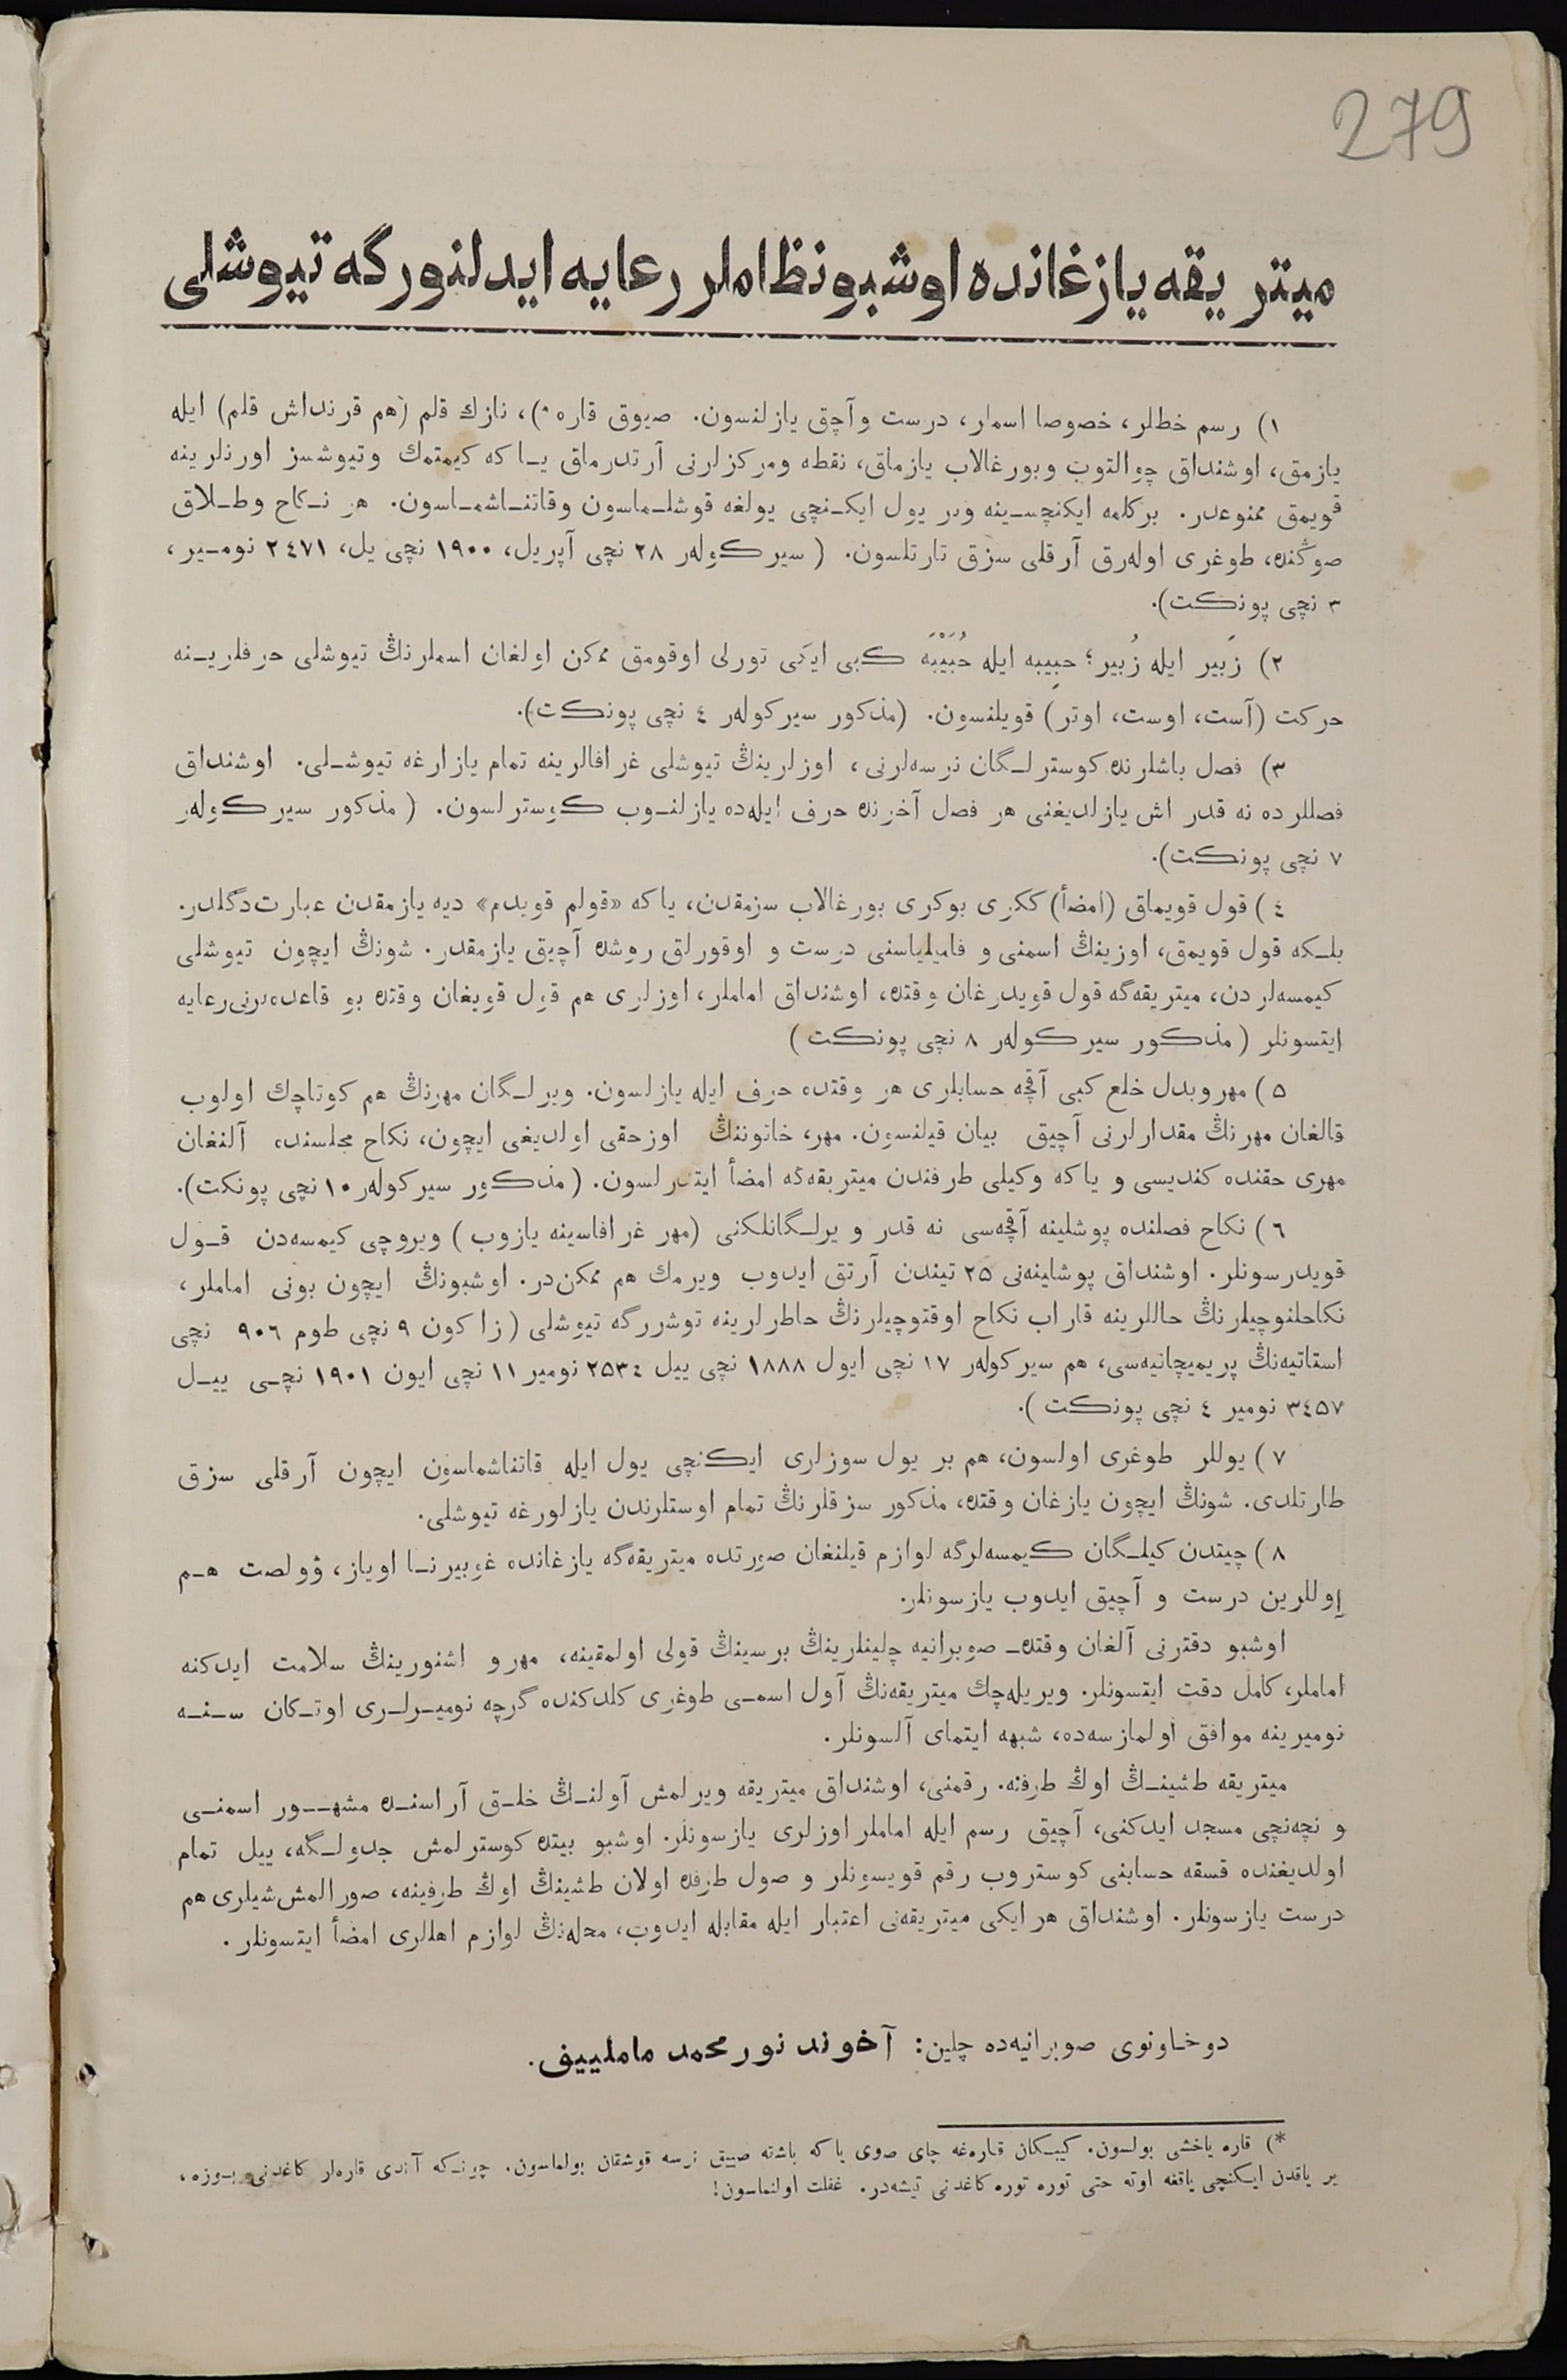 279
ميتريقه يازغانده اوشبو نظاملر رعايه ايدلنورگه تيوشلى
١) رسم خطلر، خصوصا اسملر، درست وآچق يازلنسون. صيوق قاره *)، نازك قلم (هم قرنداش قلم) ايله
يازمق، اوشنداق چوالتوب وبورغالاب يازماق، نقطه ومركزلرنى آرتدرماق يـا كه كيمتمك وتيوشسز اورنلرينه
قويمق ممنوعدر. بركلمه ايكنچسـينه وبر يول ايكـنچى يولغه قوشلـماسون وقاتنـاشمـاسون. هر نـكاح وطـلاق
صوڭنده، طوغرى اولەرق آرقلى سزق تارتلسون. (سيركولەر ٢٨ نچى آپريل، ١٩٠٠ نچى يل، ٢٤٧١ نومـير،
٣ نچى پونكت).
٢) زَبير ايله زُبير؛ حبِيبه ايله حُبَيْبَه كبى ايكى تورلى اوقومق ممكن اولغان اسملرنڭ تيوشلى حرفلريـنه
حركت (آست، اوست، اوتر) قويلنسون. (مذكور سيركولەر ٤ نچى پونكت).
٣) فصل باشلرنده كوسترلـگان نرسەلرنى، اوزلرينڭ تيوشلى غرافالرينه تمام يازارغه تيوشـلى. اوشنداق
فصللرده نه قدر اش يازلديغنى هر فصل آخرنده حرف ايلەده يازلنـوب كوسترلسون. (مذكور سيركولەر
٧ نچى پونكت).
٤) قول قويماق (امضأ) ككرى بوكرى بورغالاب سزمقدن، ياكه «قولم قويدم» ديه يازمقدن عبارت دگلدر.
بلـكه قول قويمق، اوزينڭ اسمنى و فاميلياسنى درست و اوقورلق روشده آچيق يازمقدر. شونڭ ايچون تيوشلى
كيمسەلردن، ميتريقەگه قول قويدرغان وقتده، اوشنداق اماملر، اوزلرى هم قول قويغان وقتده بو قاعدەلرنى رعايه
ايتسونلر (مذكور سيركولەر ٨ نچى پونكت)
٥) مهر وبدل خلع كبى آقچه حسابلرى هر وقتده حرف ايله يازلسون. ويرلـگان مهرنڭ هم كوتاچك اولوب
قالغان مهرنڭ مقدارلرنى آچيق بيان قيلنسون. مهر، خاتوننڭ اوزحقى اولديغى ايچون، نكاح مجلسنده آلنغان
مهرى حقنده كنديسى و ياكه وكيلى طرفندن ميتريقەگه امضأ ايتدرلسون. (مذكور سيركولەر ١٠ نچى پونكت).
٦) نكاح فصلنده پوشلينه آقچەسى نه قدر ويرلـگانلكنى (مهر غرافاسينه يازوب) ويروچى كيمسەدن قـول
قويدرسونلر. اوشنداق پوشلينەنى ٢٥ تيندن آرتق ايدوب ويرمك هم ممكن‌در. اوشبونڭ ايچون بونى اماملر،
نكاحلنوچيلرنڭ حاللرينه قاراب نكاح اوقتوچيلرنڭ خاطرلرينه توشررگه تيوشلى (زاكون ٩ نچى طوم ٩٠٦ نچى
استاتيەنڭ پريميچانيەسى، هم سيركولەر ١٧ نچى ايول ١٨٨٨ نچى ييل ٢٥٣٤ نومير ١١ نچى ايون ١٩٠١ نچـى ييـل
٣٤٥٧ نومير ٤ نچى پونكت).
٧) يوللر طوغرى اولسون، هم بر يول سوزلرى ايكنچى يول ايله قاتناشماسون ايچون آرقلى سزق
طارتلدى. شونڭ ايچون يازغان وقتده، مذكور سزقلرنڭ تمام اوستلرندن يازلورغه تيوشلى.
٨) چيتدن كيلـگان كيمسەلرگه لوازم قيلنغان صورتده ميتريقەگه يازغانده غوبيرنـا اوياز، ؤولصت هـم
آوللرين درست و آچيق ايدوب يازسونلر.
اوشبو دفترنى آلغان وقتده صوبرانيه چلينلرينڭ برسينڭ قولى اولمقينه، مهر و اشنورينڭ سلامت ايدكنه
اماملر، كامل دقت ايتسونلر. ويريلەچك ميتريقەنڭ آول اسمـى طوغرى كلدكنده گرچه نوميـرلـرى اوتـكان سـنـه
نوميرينه موافق اولمازسەده، شبهه ايتماى آلسونلر.
ميتريقه طشينـڭ اوڭ طرفنه. رقمنى، اوشنداق ميتريقه ويرلمش آولنـڭ خلـق آراسنـده مشهــور اسمنـى
و نچەنچى مسجد ايدكنى، آچيق رسم ايله اماملر اوزلرى يازسونلر. اوشبو بيتده كوسترلمش جدولـگه، ييل تمام
اولديغنده قسقه حسابنى كوستروب رقم قويسونلر و صول طرفده اولان طشينڭ اوڭ طرفينه، صورالمش شيلرى هم
درست يازسونلر. اوشنداق هر ايكى ميتريقەنى اعتبار ايله مقابله ايدوب، محلەنڭ لوازم اهاللرى امضأ ايتسونلر.
دوخاونوى صوبرانيەده چلين: آخوند نورمحمد ماملييف.
*) قاره ياخشى بولسون. كيبـكان قارەغه چاى صوى ياكه باشقه صييق نرسه قوشقان بولماسون. چونـكه آندى قارەلر كاغدنى بـوزه،
بر ياقدن ايكنچى ياققه اوته حتى توره توره كاغدنى تيشەدر. غفلت اولنماسون!